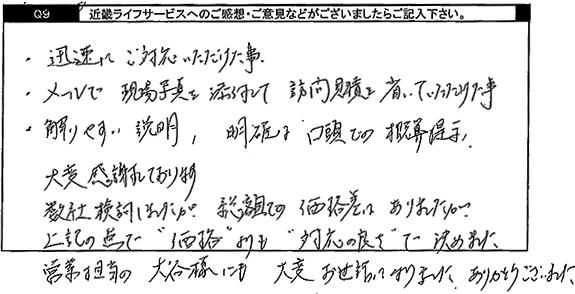 Q9 近畿ライフサービスへのご感想・ご意見などがございましたらご記入下さい。
・迅速にご対応いただけた事.
・メールで現場写真を添付して訪問見積を省いていただけた事
・解りやすい説明, 明確な口頭での概算提示.
大変感謝しております
数社検討しましたが 総額での価格差は ありましたが
上記の点で“価格”よりも“対応の良さ”で決めました.
営業担当の大谷様にも 大変お世話になりました. ありがとうございました.